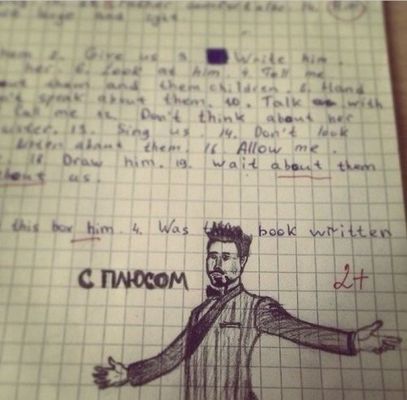 them 2. Give us 3. Write him.
her. 6. Look at him. 7. Tell me
out them and them children. 8. Hand
n't speak about them. 10. Talk with
call me 12. Don't think about her
13. Sing us. 14. Don't look
about them. 16. Allow me.
18. Draw him. 19. wait about them
about us.
this box him. 4. Was book written
с плюсом
2+